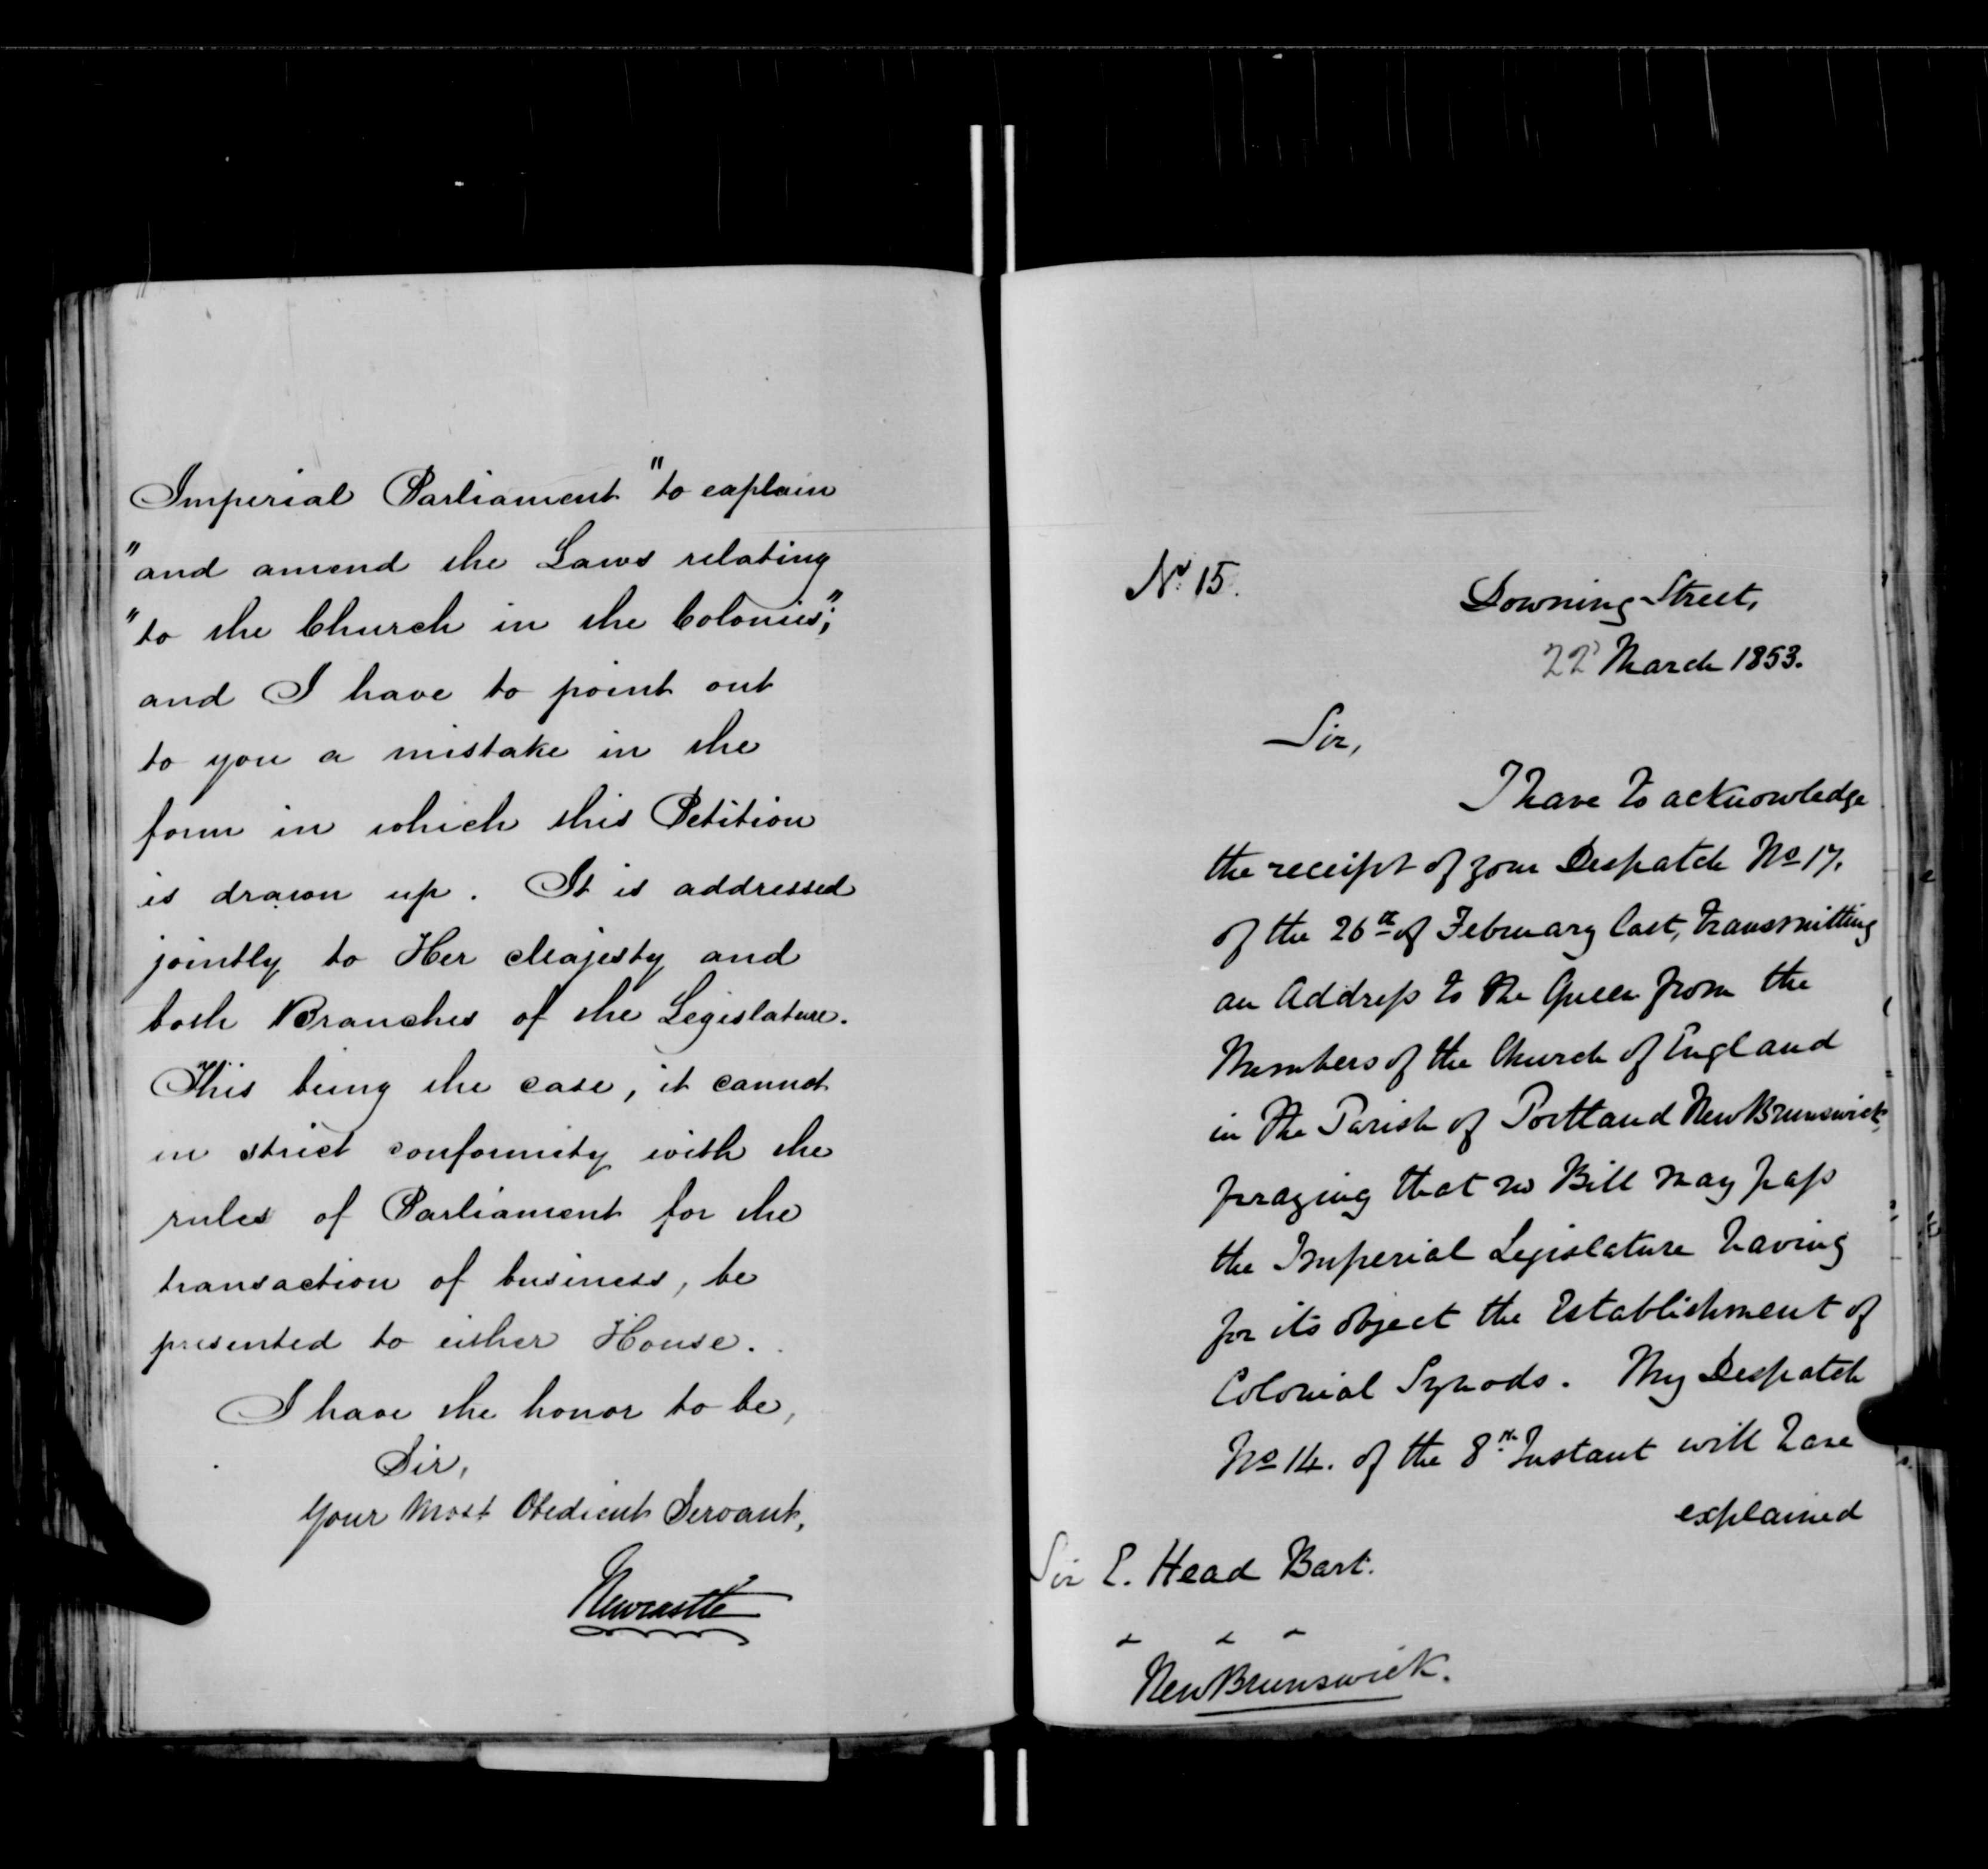 Imperial Parliament "to explain
"and amend the Laws relating
"to the Church in the Colonies";
and I have to point out
to you a mistake in the
form in which this Petition
is drawn up. It is addressed
jointly to Her Majesty and
both Branches of the Legislature.
This being the case, it cannot
in strict conformity with the
rules of Parliament for the
transaction of business, be
presented to either House.
I have the honor to be,
Sir,
Your Most Obedient Servant,
Newcastle
No. 15.
Downing Street,
22 March 1853.
Sir,
I have to acknowledge
the receipt of your Despatch No 17.
of the 26th of February last, transmitting
an Address to the Queen from the
Members of the Church of England
in the Parish of Portland New Brunswick,
praying that no Bill may pass
the Imperial Legislature having
for its object the Establishment of
Colonial Synods. My Despatch
No 14. of the 8th Instant will have
explained
Sir E. Head Bart.
New Brunswick.